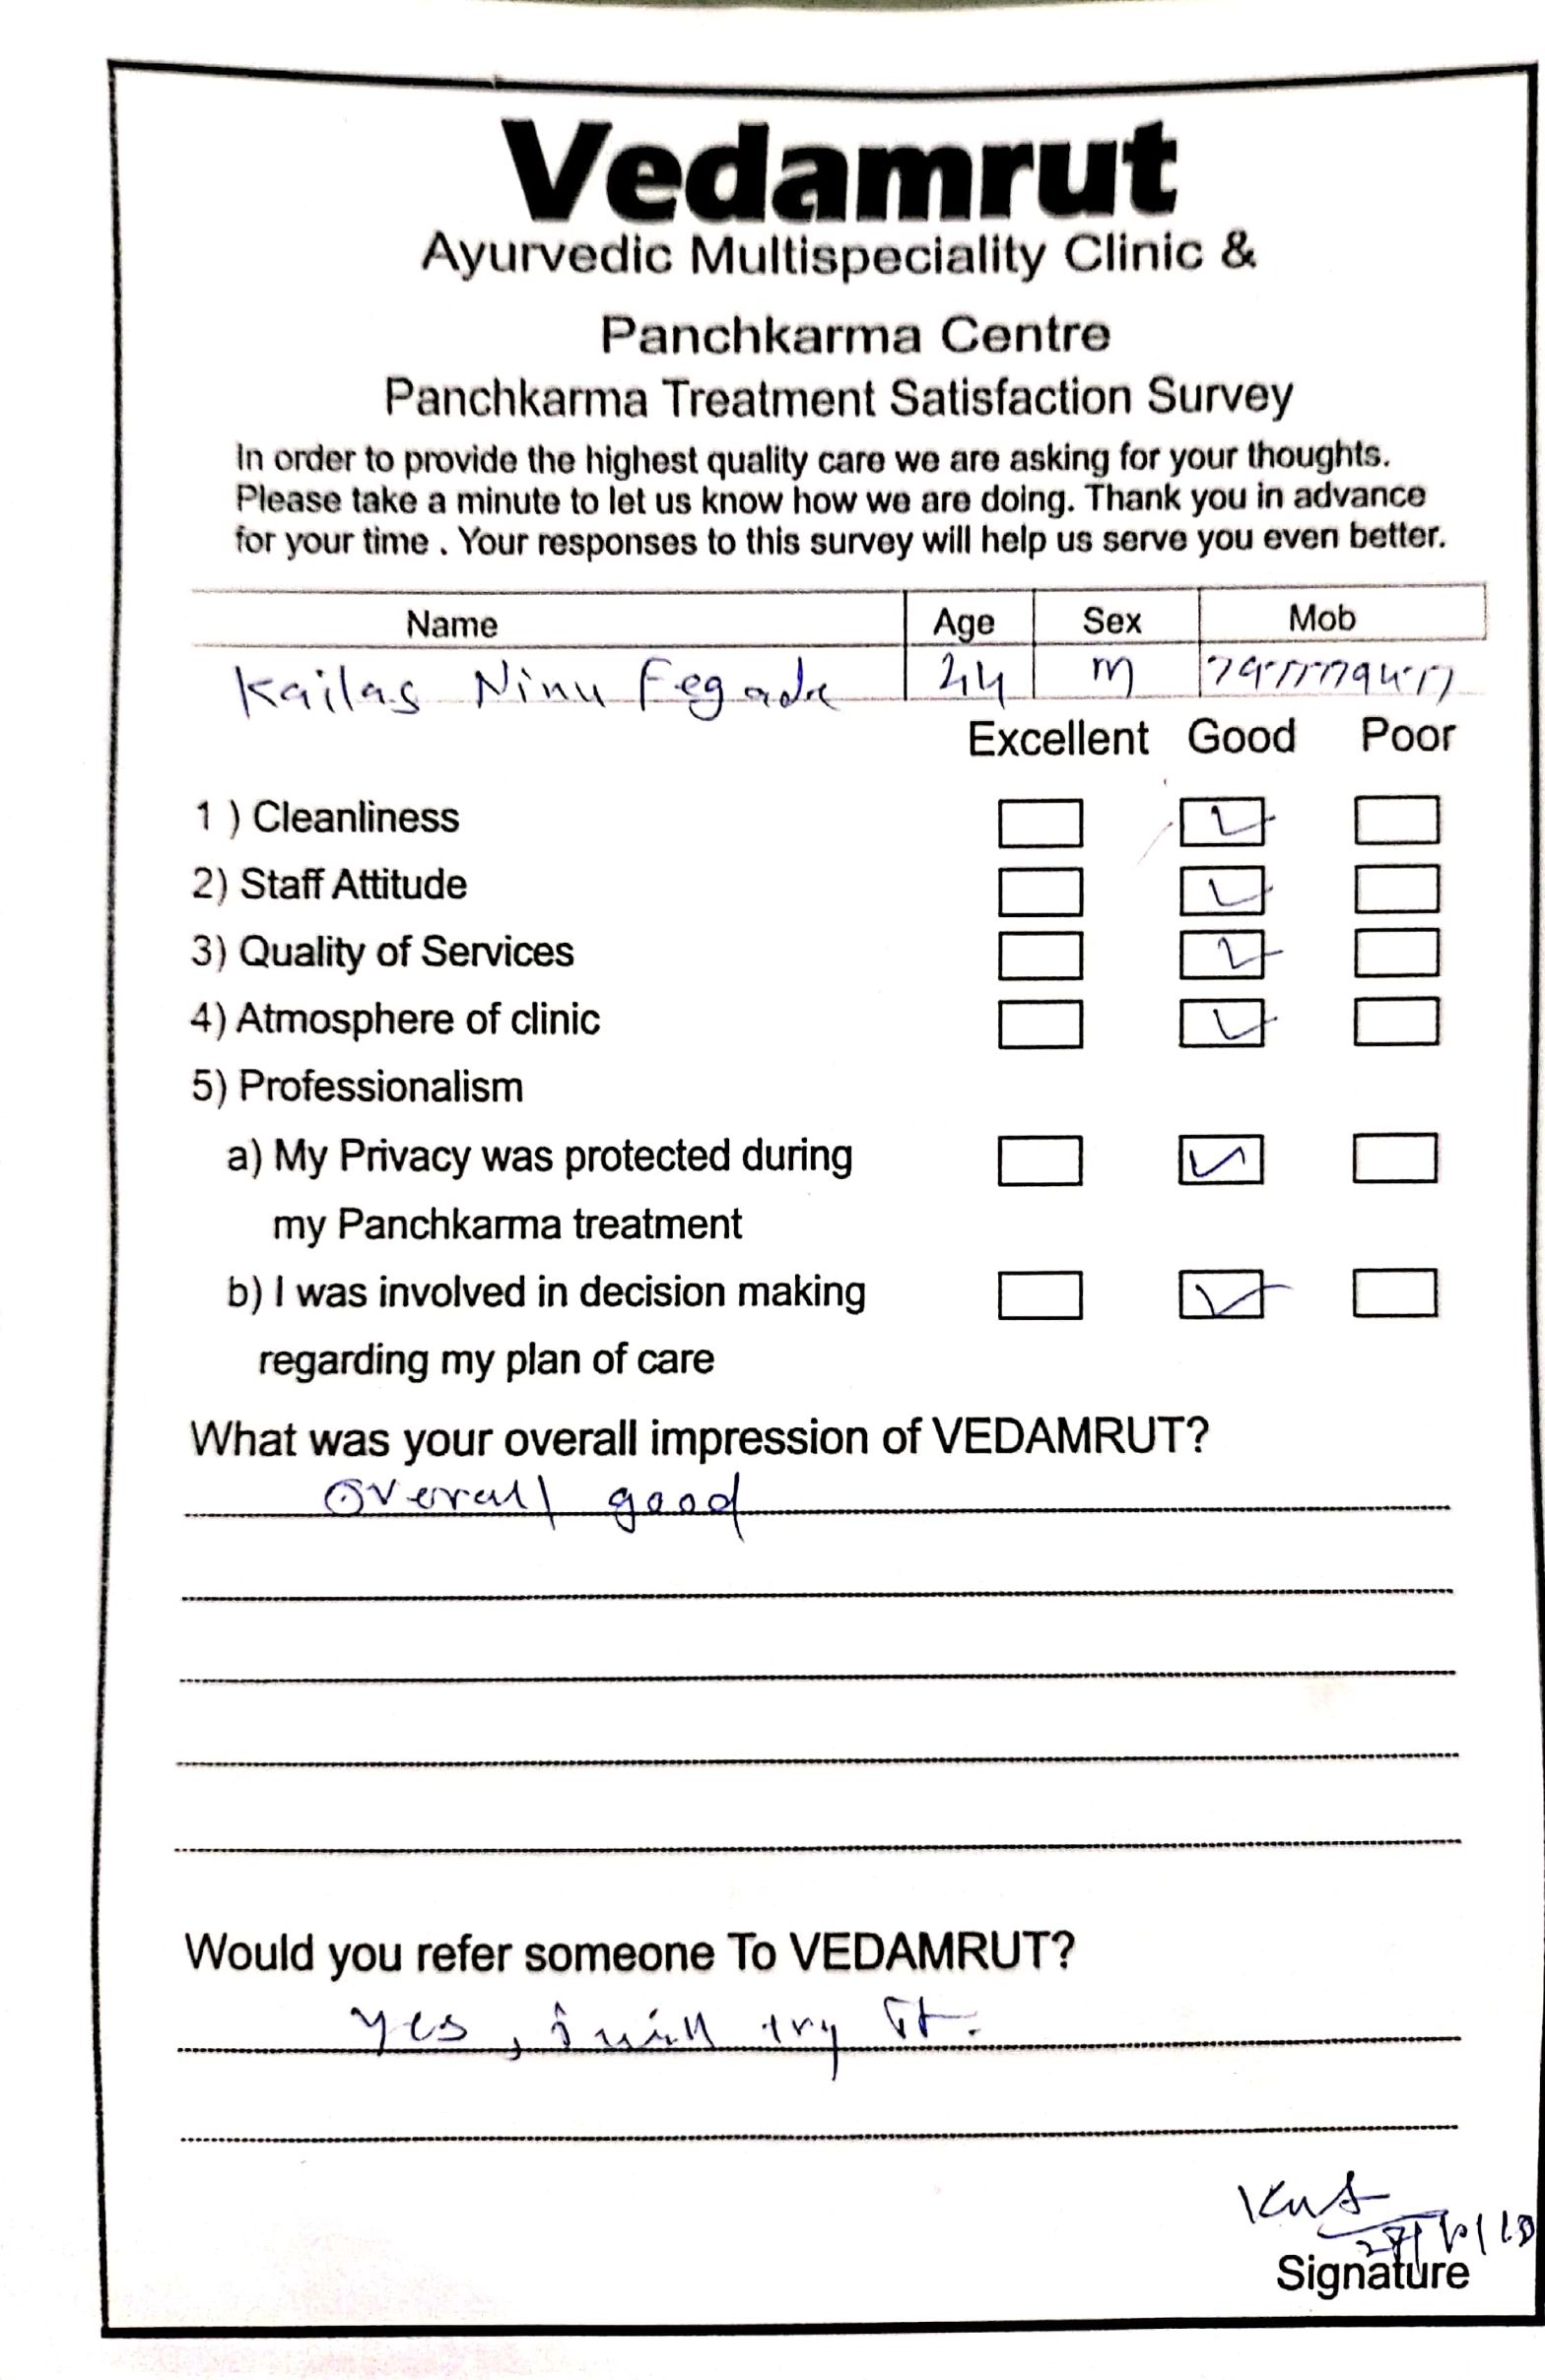 Vedamrut
Ayurvedic Multispeciality Clinic &
Panchkarma Centre
Panchkarma Treatment Satisfaction Survey
In order to provide the highest quality care we are asking for your thoughts.
Please take a minute to let us know how we are doing. Thank you in advance
for your time . Your responses to this survey will help us serve you even better.
Name Age Sex Mob
Kailas Ninu Fegade 44 M
Excellent Good Poor
1 ) Cleanliness
2) Staff Attitude
3) Quality of Services
4) Atmosphere of clinic
5) Professionalism
a) My Privacy was protected during
my Panchkarma treatment
b) I was involved in decision making
regarding my plan of care
What was your overall impression of VEDAMRUT?
Overall good
Would you refer someone To VEDAMRUT?
Yes, i will try it.
Signature